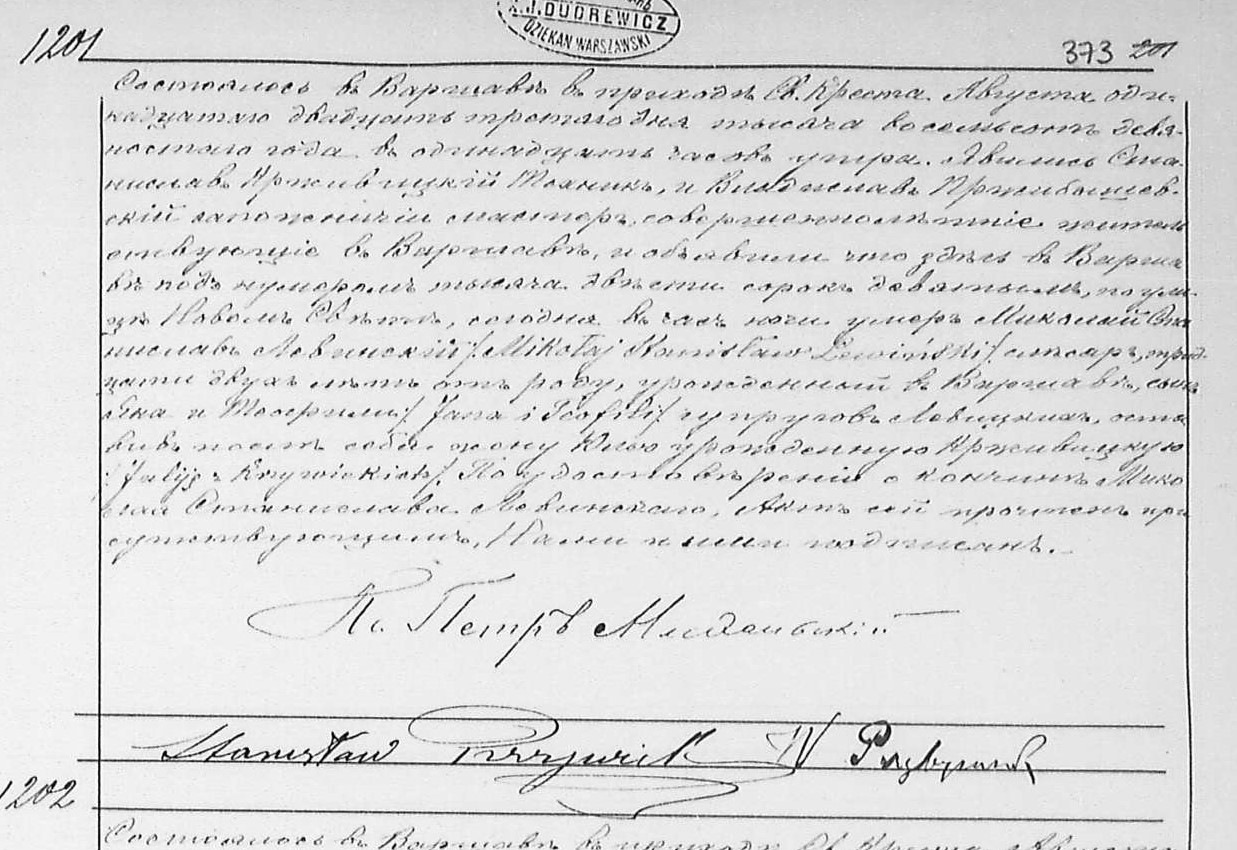 J. DUDREWICZ
DZIEKAN WARSZAWSKI
1201
373 201
Состоялось въ Варшавѣ въ приходѣ Св. Креста Августа оди-
надцатаго двадцать третьяго дня тысяча восемьсотъ девя-
ностаго года въ одинадцать часовъ утра. Явились Ста-
ниславъ Крживицкій Техникъ, и Владиславъ Пржибышев-
скій сапожничій мастеръ, совершеннолѣтніе житель
ствующіе въ Варшавѣ, и объявили что здѣсь въ Варша
вѣ подъ нумеромъ тысяча двѣсти сорокъ девятымъ, по ули
цѣ Новомъ Свѣтѣ, сегодня въ часъ ночи умеръ Миколай Ста
ниславъ Левинскій /Mikołaj Stanisław Lewiński/ слесарь, трид-
цати двухъ лѣтъ отъ роду, урожденный въ Варшавѣ, сынъ
Яна и Теофили /Jana i Teofili/ супруговъ Левицкихъ, оста
вивъ послѣ себя жену Юлію урожденную Крживицкую
/Julję z Krzywickich/. По удостовѣреніи о кончинѣ Мико
лая Станислава Левинскаго, Актъ сей прочтенъ при
сутствующимъ, Нами и ими подписанъ.
Кс. Петръ
Stanisław W
1202
Состоялось въ Варшавѣ въ приходѣ Св. Креста Августа